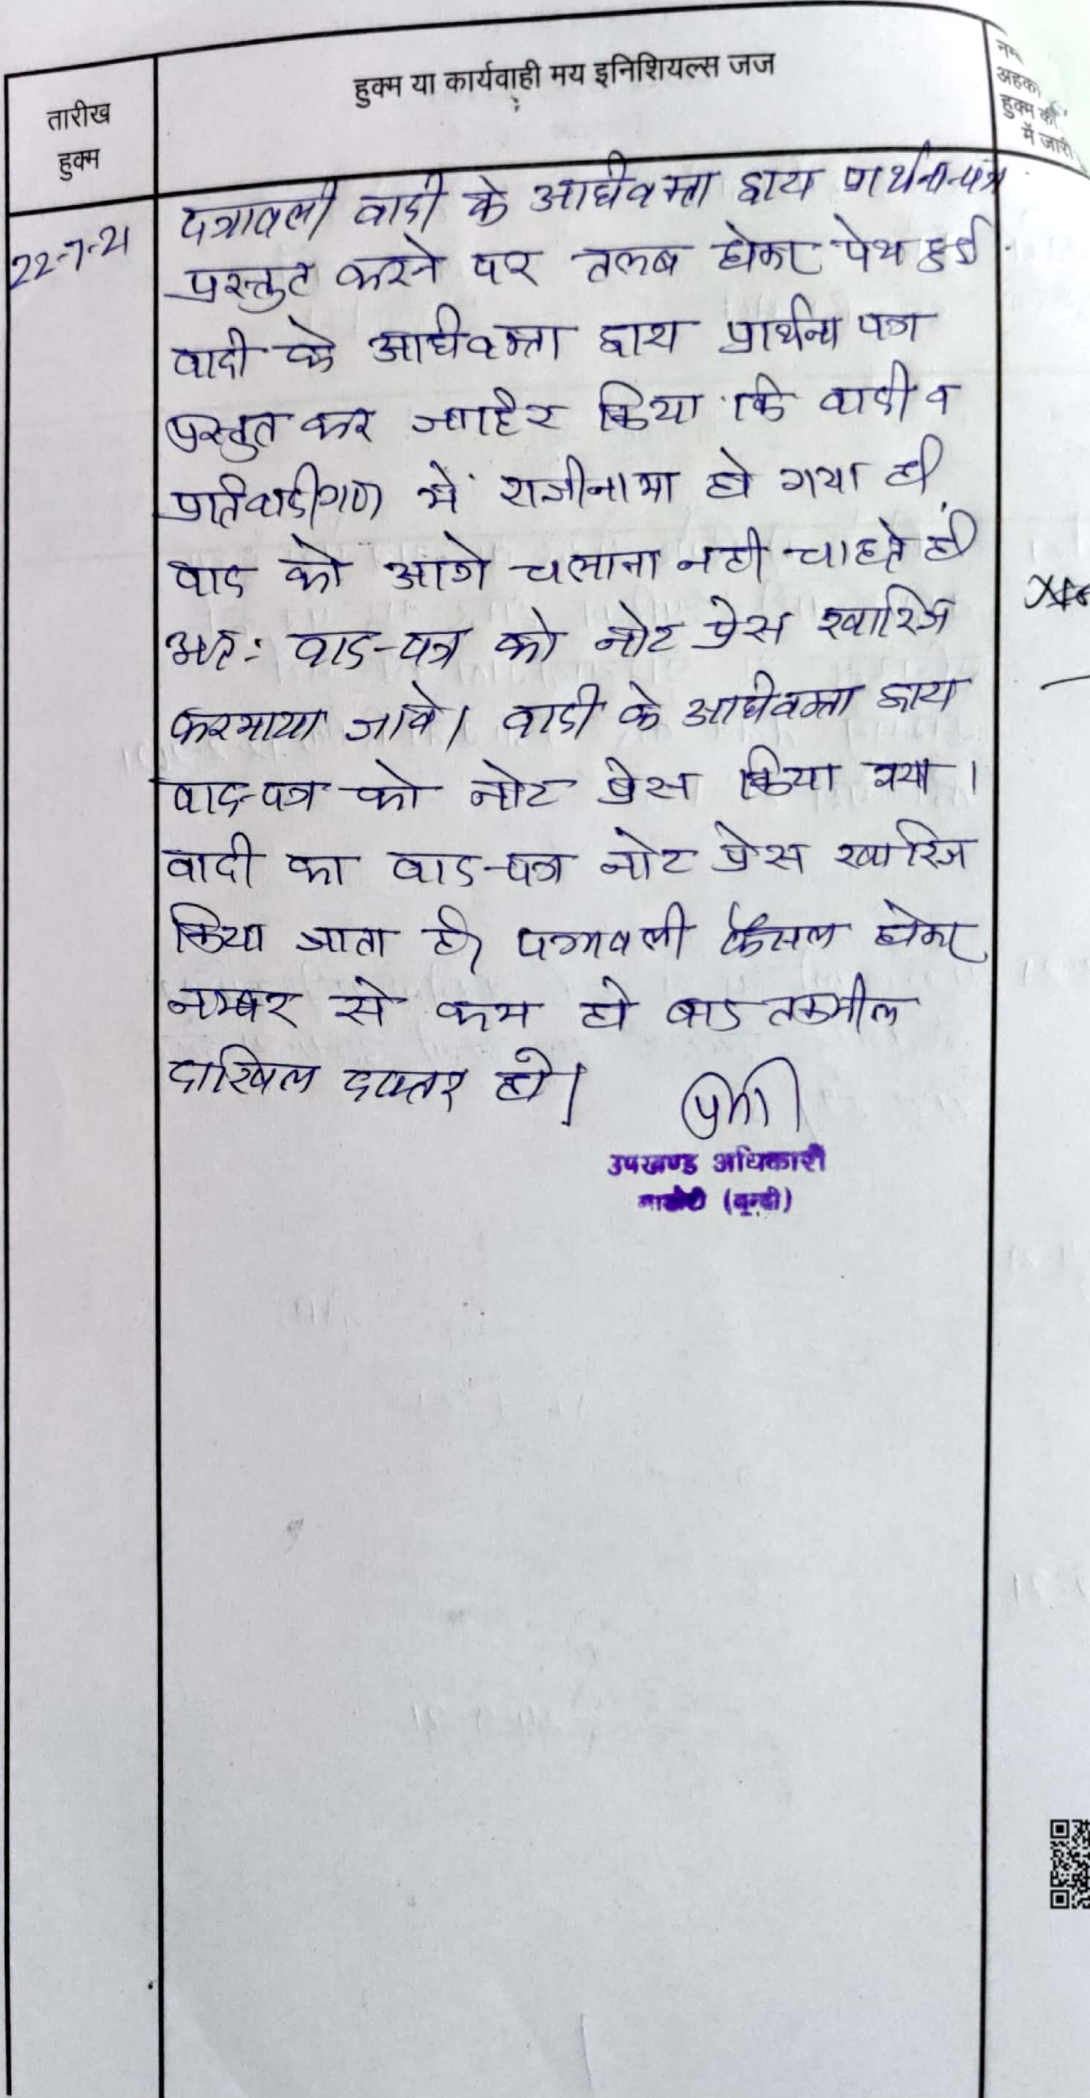 तारीख
हुक्म
हुक्म या कार्यवाही मय इनिशियल्स जज
अहका
हुक्म की
में जारी
22-7-21
पत्रावली वादी के अधिवक्ता द्वारा प्रार्थना-पत्र
प्रस्तुत करने पर तलब होकर पेश हुई.
वादी के अधिवक्ता द्वारा प्रार्थना पत्र
प्रस्तुत कर जाहिर किया कि वादी व
प्रतिवादीगण में राजीनामा हो गया है,
वाद को आगे चलाना नही चाहते है
अतः वाद-पत्र को नोट प्रेस खारिज
फरमाया जावे। वादी के अधिवक्ता द्वारा
वाद-पत्र को नोट प्रेस किया गया।
वादी का वाद-पत्र नोट प्रेस खारिज
किया जाता है, पत्रावली फैसल होकर
नम्बर से कम हो बाद तकमील
दाखिल दफ्तर हो।
उपखण्ड अधिकारी
(बून्दी)